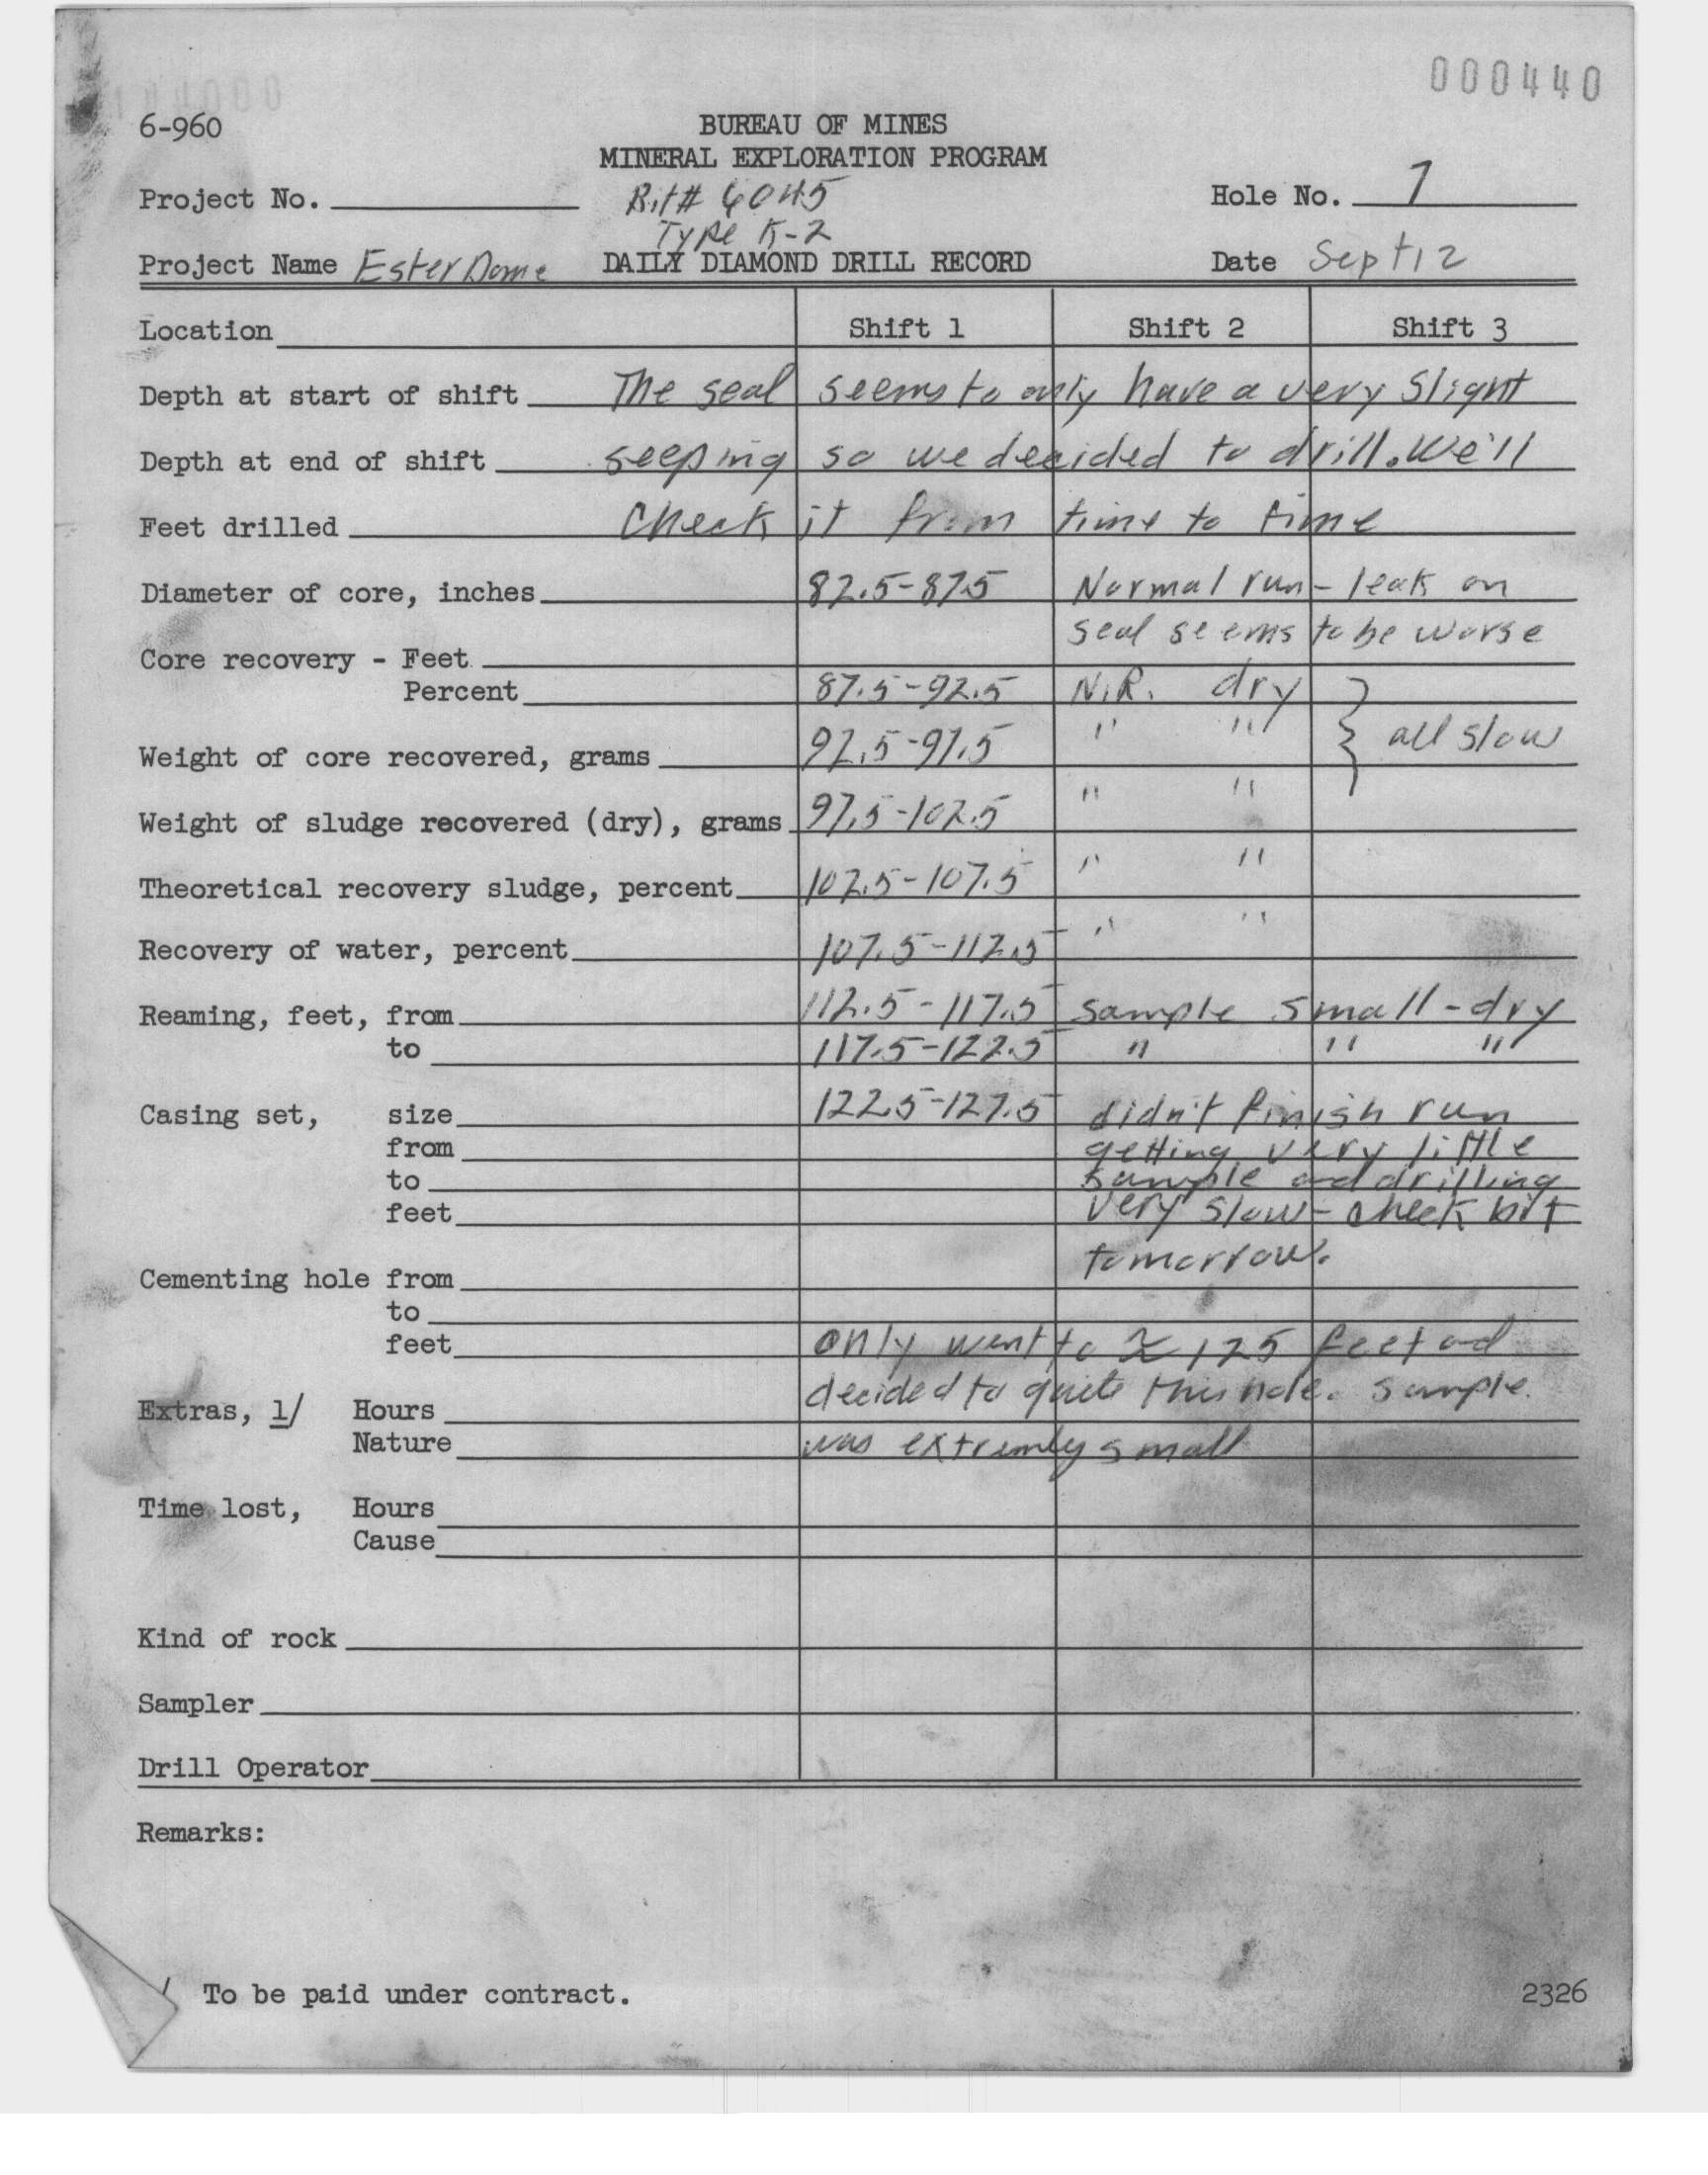 000440
6-960
BUREAU OF MINES
MINERAL EXPLORATION PROGRAM
Project No. Bit# 6045 Hole No. 7
Type K-2
Project Name Ester Dome DAILY DIAMOND DRILL RECORD Date Sept 12
Location Shift 1 Shift 2 Shift 3
Depth at start of shift The seal seems to only have a very slight
Depth at end of shift seeping so we decided to drill. We'll
Feet drilled Check it from time to time
Diameter of core, inches 82.5-87.5 Normal run - leak on
seal seems to be worse
Core recovery - Feet
Percent 87.5-92.5 N.R. dry
Weight of core recovered, grams 92.5-97.5 " " } all slow
Weight of sludge recovered (dry), grams 97.5-102.5 " "
Theoretical recovery sludge, percent 102.5-107.5 " "
Recovery of water, percent 107.5-112.5 " "
Reaming, feet, from 112.5-117.5 sample small - dry
to 117.5-122.5 " " "
Casing set, size 122.5-127.5 didn't finish run
from getting very little
to sample and drilling
feet very slow - check bit
tomorrow.
Cementing hole from
to
feet only went to ≈ 125 feet and
decided to quite this hole. sample
Extras, 1/ Hours
Nature was extremly small
Time lost, Hours
Cause
Kind of rock
Sampler
Drill Operator
Remarks:
/ To be paid under contract.
2326